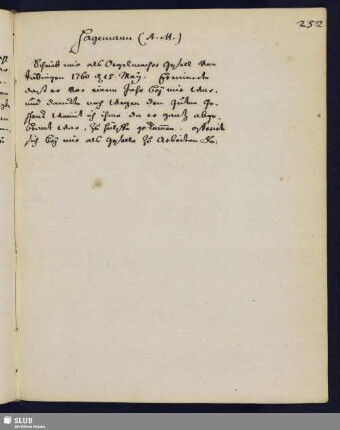 252
Hagemann (A. M.)
Schrieb mir als Orgelmacher Gesell von
Tübingen 1760 d. 15. May. Erinnerte
daß er vor einem Jahr bey mir war,
und danckte noch wegen dem guten Ge-
schenk womit ich ihme da er gantz abge-
brant war, zu hülffe gekommen.
sich bey mir als Geselle zu arbeiten
SLUB
Wir führen Wissen.